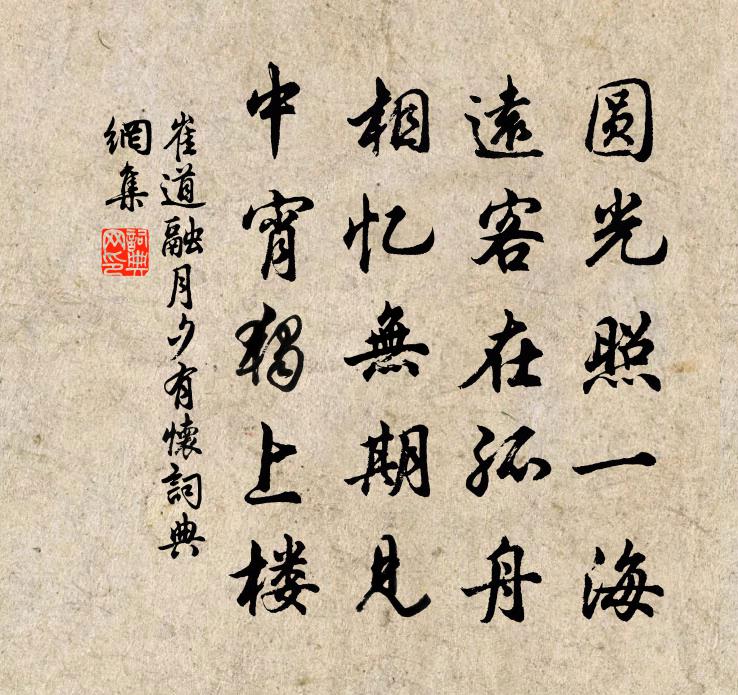 圆光照一海
遠客在孤舟
相忆無期見
中宵獨上楼
崔道融月夕有懷詞典
網集
詞典网印